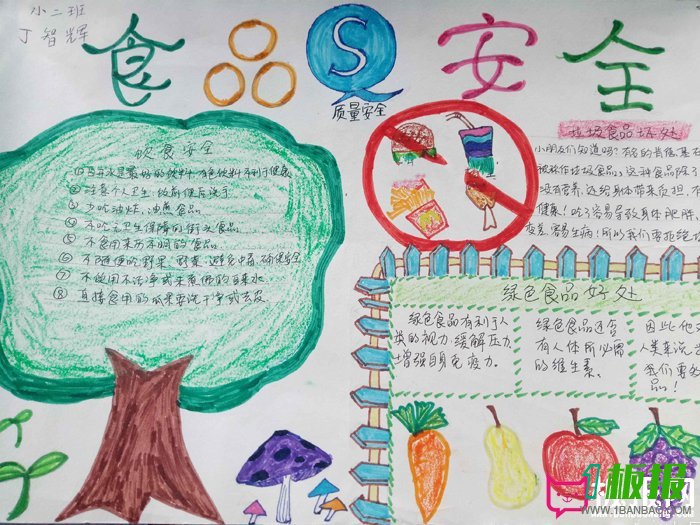 小二班
丁智辉
食品安全
S
质量安全
饮食安全
①白开水是最好的饮料,有些饮料不利于健康
② 注意个人卫生,饭前便后洗手
③ 少吃油炸、油煎食品
④ 不吃无卫生保障的街头食品
⑤ 不食用来历不明的食品
⑥ 不随便吃野果、野菜,避免中毒,确保安全
⑦ 不使用不洁净或未煮沸的自来水
⑧ 直接食用的瓜果要洗干净或去皮
垃圾食品坏处
小朋友们知道吗?有名的肯德基
被称作垃圾食品,这种食品除了
没有营养,还给身体带来负担,不
健康!吃了容易导致身体肥胖,
变差,容易生病!所以我们要拒绝垃
绿色食品好处
绿色食品有利于人
类的视力,缓解压力,
增强自身免疫力。
绿色食品还含
有人体所必需
的维生素。
因此,他
人类来说
我们要多
品!
1板报
WWW.1BANBAO.COM